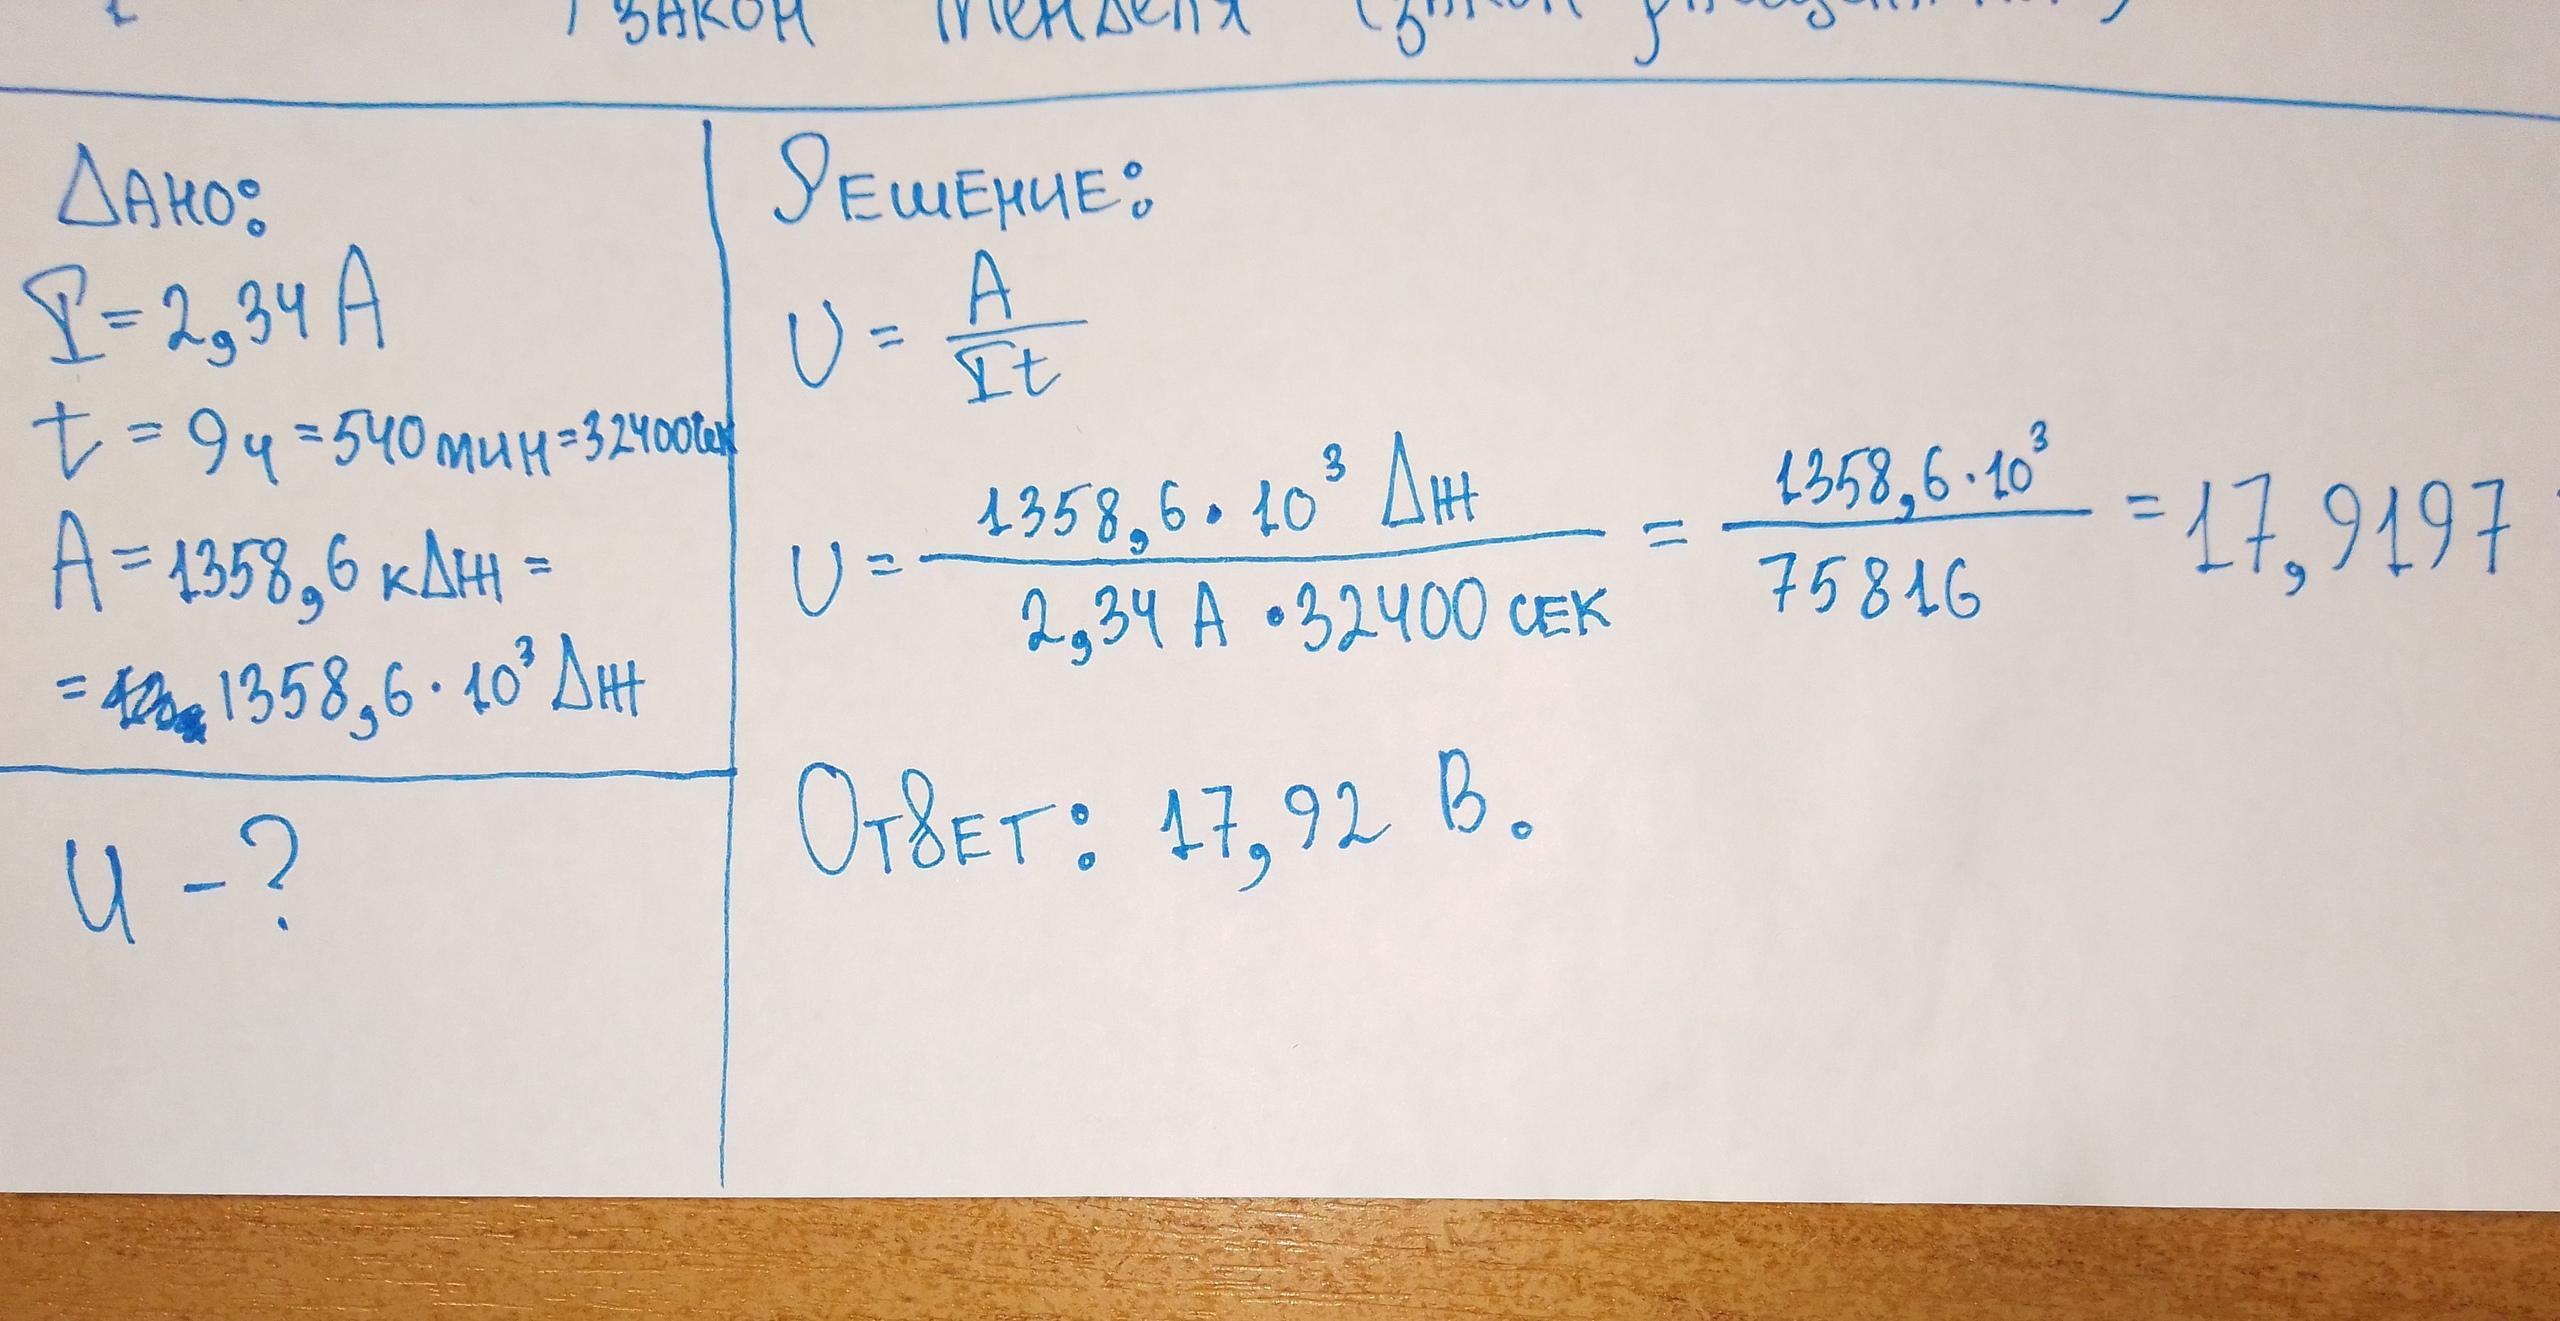 закон Менделя (закон
Дано:
I = 2,34 А
t = 9ч = 540 мин = 32400 сек
А = 1358,6 кДж =
= 1358,6 · 10³ Дж
U - ?
Решение:
U = А / It
U = 1358,6 · 10³ Дж / 2,34 А · 32400 сек = 1358,6 · 10³ / 75816 = 17,9197
Ответ: 17,92 В.